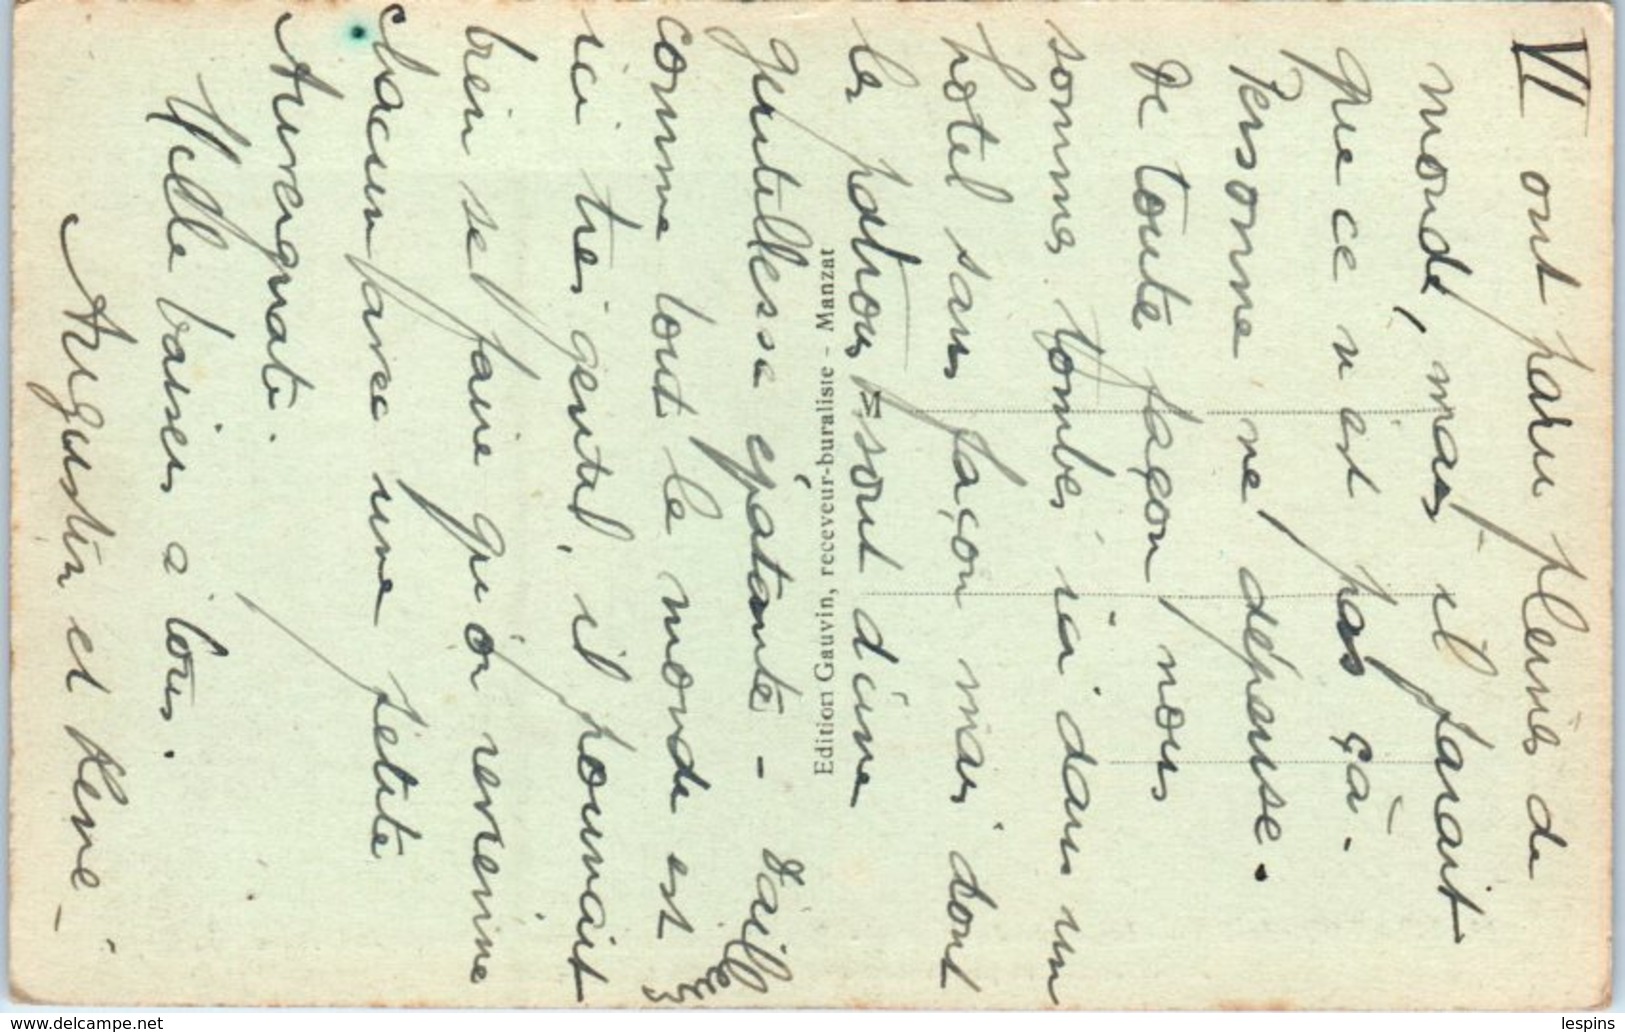 VI ont paru pleines de
monde, mais il parait
que ce n'est pas ça.
Personne ne dépense.
De toute façon nous
sommes tombés ici dans un
hotel sans façon mais dont
les patrons sont d'une
gentillesse épatante - D'aill
eurs
comme tout le monde est
ici très gentil, il pourrait
bien se faire qu'on revienne
chacun avec une petite
Auvergnate.
Mille baisers à tous.
Augustin et René -
M
Edition Gauvin, receveur-buraliste - Manzat
www.delcampe.net
lespins